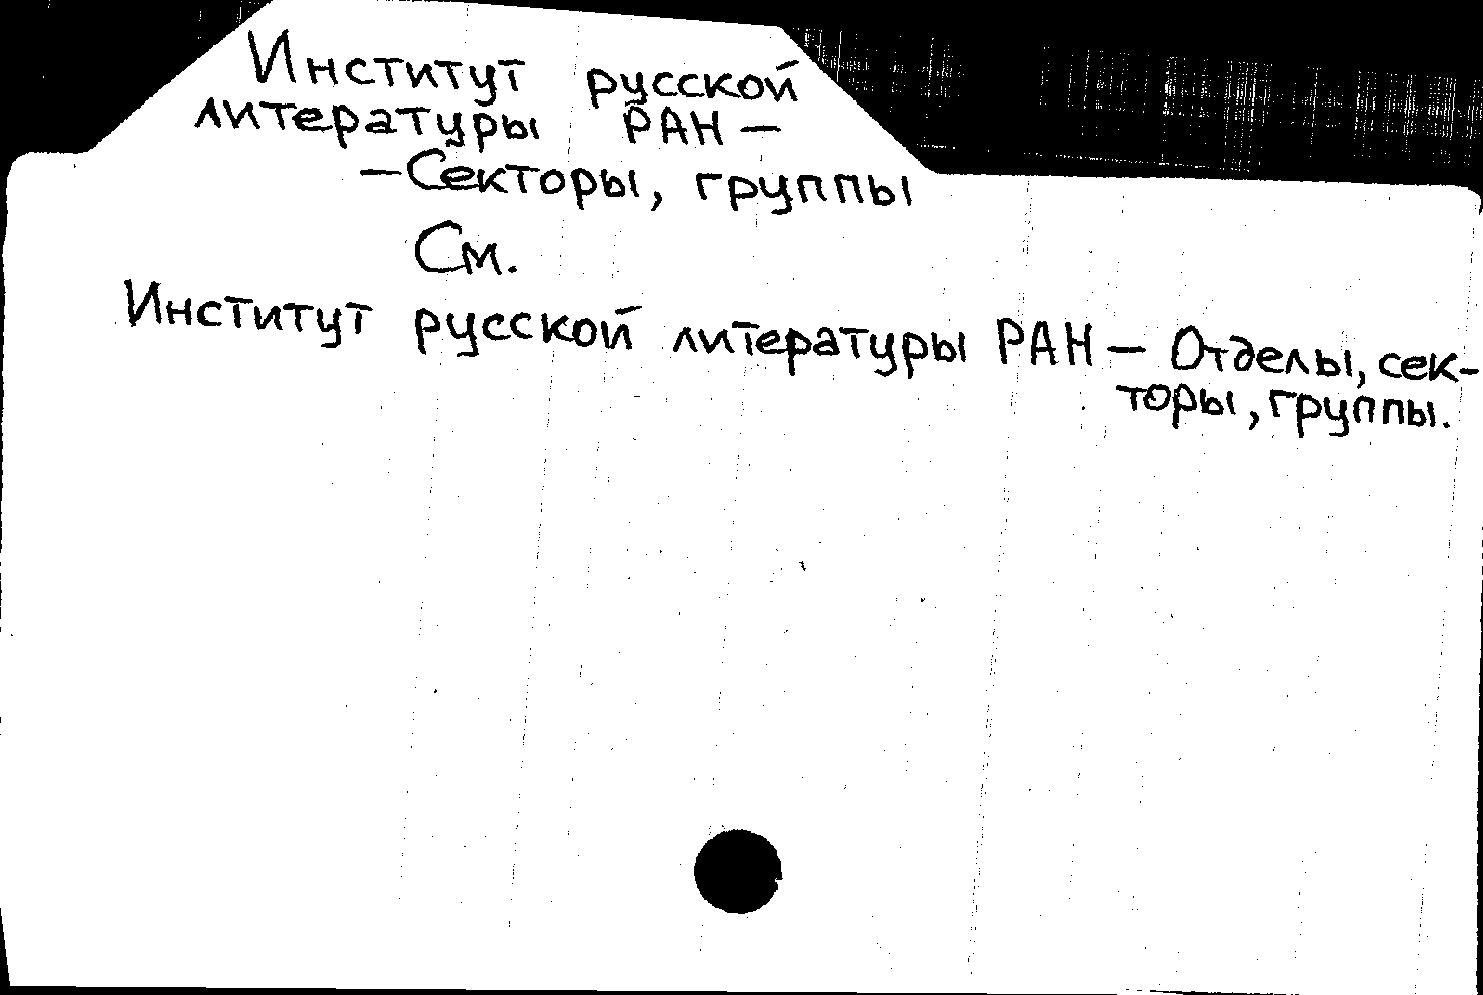 Институт русской
литературы РАН —
— Секторы, группы
См.
Институт русской литературы РАН — Отделы, сек-
торы, группы.